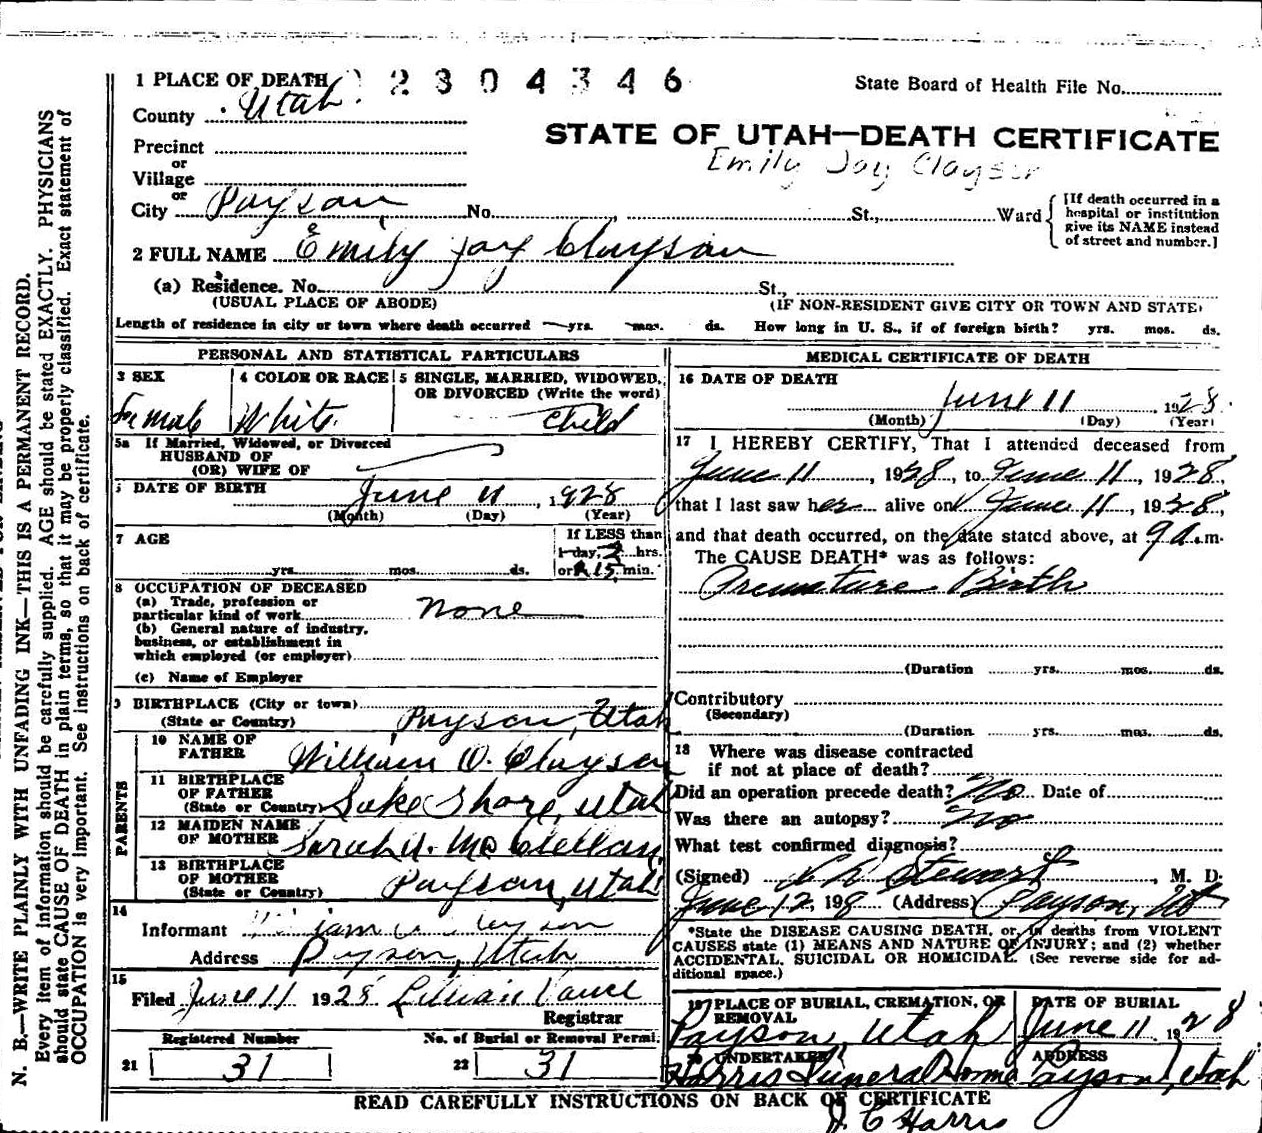 1 PLACE OF DEATH 2304346 State Board of Health File No.
County Utah.
STATE OF UTAH—DEATH CERTIFICATE
Precinct
or
Emily Jay Clayson
Village
or
City Payson No. , St., Ward
[If death occurred in a
hospital or institution
give its NAME instead
of street and number.]
2 FULL NAME Emily Jay Clayson
(a) Residence. No. St.,
(USUAL PLACE OF ABODE) (IF NON-RESIDENT GIVE CITY OR TOWN AND STATE)
Length of residence in city or town where death occurred yrs. mos. ds. How long in U. S., if of foreign birth? yrs. mos. ds.
PERSONAL AND STATISTICAL PARTICULARS
3 SEX
Female
4 COLOR OR RACE
White
5 SINGLE, MARRIED, WIDOWED,
OR DIVORCED (Write the word)
Child
5a If Married, Widowed, or Divorced
HUSBAND OF
(OR) WIFE OF
DATE OF BIRTH June 11, 1928
(Month) (Day) (Year)
7 AGE
yrs. mos. ds.
If LESS than
1 day, 2 hrs.
or 15 min.
8 OCCUPATION OF DECEASED
(a) Trade, profession or
particular kind of work None
(b) General nature of industry,
business, or establishment in
which employed (or employer)
(c) Name of Employer
9 BIRTHPLACE (City or town)
(State or Country) Payson, Utah
PARENTS
10 NAME OF
FATHER William O. Clayson
11 BIRTHPLACE
OF FATHER
(State or Country) Lake Shore, Utah
12 MAIDEN NAME
OF MOTHER Sarah A. McClellan
13 BIRTHPLACE
OF MOTHER
(State or Country) Payson, Utah
14
Informant William O Clayson
Address Payson, Utah
15
Filed June 11 1928 Lillian Vance
Registrar
Registered Number No. of Burial or Removal Permit
21 31 22 31
MEDICAL CERTIFICATE OF DEATH
16 DATE OF DEATH
June 11, 1928.
(Month) (Day) (Year)
17 I HEREBY CERTIFY, That I attended deceased from
June 11, 1928, to June 11, 1928,
that I last saw her alive on June 11, 1928,
and that death occurred, on the date stated above, at 9 a.m.
The CAUSE DEATH* was as follows:
Premature Birth
(Duration yrs. mos. ds.
Contributory
(Secondary)
(Duration yrs. mos. ds.
18 Where was disease contracted
if not at place of death?
Did an operation precede death? No Date of
Was there an autopsy? No
What test confirmed diagnosis?
(Signed) Stewart, M. D.
June 12, 198 (Address) Payson, Ut
*State the DISEASE CAUSING DEATH, or, in deaths from VIOLENT
CAUSES state (1) MEANS AND NATURE OF INJURY; and (2) whether
ACCIDENTAL, SUICIDAL OR HOMICIDAL. (See reverse side for ad-
ditional space.)
19 PLACE OF BURIAL, CREMATION, OR
REMOVAL
Payson, Utah
DATE OF BURIAL
June 11 1928
20 UNDERTAKER
Harris Funeral Home
ADDRESS
Payson, Utah
READ CAREFULLY INSTRUCTIONS ON BACK OF CERTIFICATE
J. C Harris
N. B.—WRITE PLAINLY WITH UNFADING INK—THIS IS A PERMANENT RECORD.
Every item of information should be carefully supplied. AGE should be stated EXACTLY. PHYSICIANS
should state CAUSE OF DEATH in plain terms, so that it may be properly classified. Exact statement of
OCCUPATION is very important. See instructions on back of certificate.